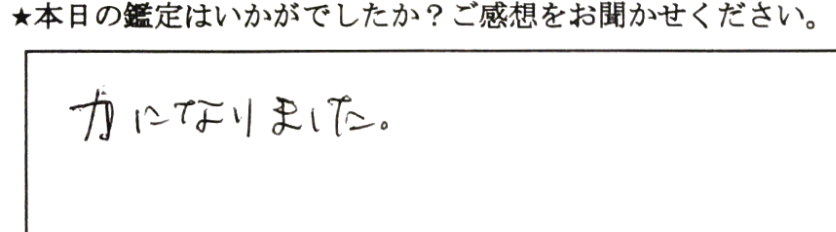 ★本日の鑑定はいかがでしたか？ご感想をお聞かせください。
力になりました。